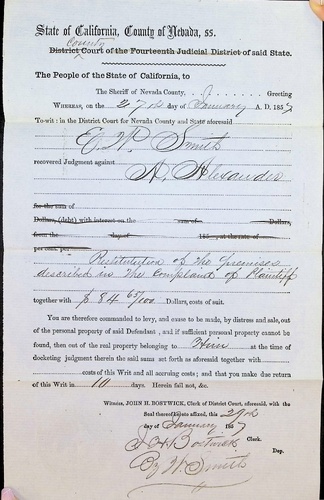 State of California, County of Nevada, ss.
County
District Court of the Fourteenth Judicial District of said State.
The People of the State of California, to
The Sheriff of Nevada County, Greeting
WHEREAS, on the 27th day of January A. D. 1857
To-wit: in the District Court for Nevada County and State aforesaid
E. W. Smith
recovered Judgment against
A. Alexander
for the sum of
Dollars, (debt) with interest on the sum of Dollars,
from the day of 185 , at the rate of
per cent. per
Restitution of the premises
described in the Complaint of Plaintiff
together with $ 84 65/100 Dollars, costs of suit.
You are therefore commanded to levy, and cause to be made, by distress and sale, out
of the personal property of said Defendant , and if sufficient personal property cannot be
found, then out of the real property belonging to Him at the time of
docketing judgment therein the said sum set forth as aforesaid together with
costs of this Writ and all accruing costs; and that you make due return
of this Writ in 10 days. Herein fail not, &c.
WITNESS, JOHN H. BOSTWICK, Clerk of District Court, aforesaid, with the
Seal thereof hereto affixed, this 29th
day of January 1857
J H Bostwick Clerk.
By W. Smith Dep.